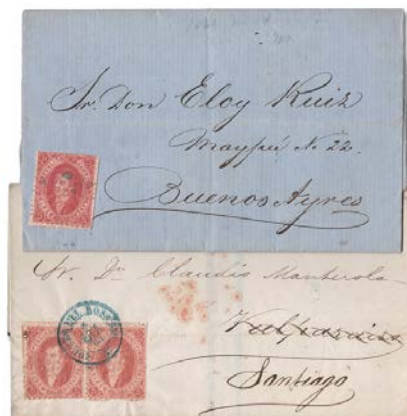 Sr. Don Eloy Ruiz
Maypú N. 22.
Buenos Ayres
Sr. Dn. Claudio Manterola
Valparaiso
Santiago